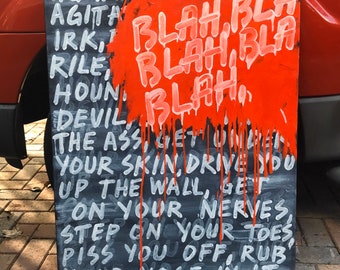 AGITA
BLAH, BLA
IRK,
BLAH, BLA
RILE,
BLAH,
HOUN
DEVIL,
THE ASS, GET UNDER
YOUR SKIN, DRIVE YOU
UP THE WALL, GET
ON YOUR NERVES,
STEP ON YOUR TOES,
PISS YOU OFF, RUB